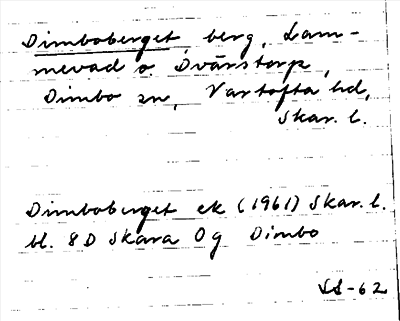 Dimboberget berg, Lam-
mevad o. Dvärstorp,
Dimbo sn, Vartofta hd,
Skar. l.
Dimboberget ek (1961) Skar. l.
bl. 8D Skara 0g Dimbo
SS-62